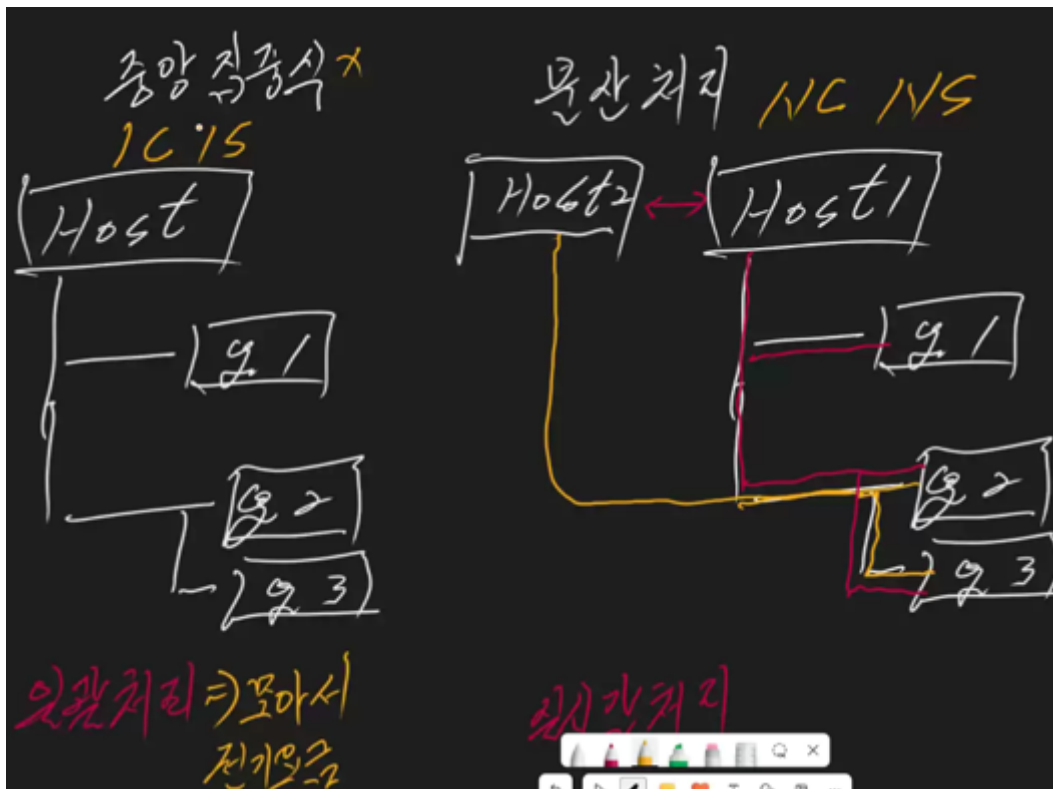 중앙 집중식 x
1C 1S
Host
g 1
g 2
g 3
일괄처리 => 모아서
전기요금
분산처리 NC NS
Host2
Host1
g 1
g 2
g 3
실시간처리